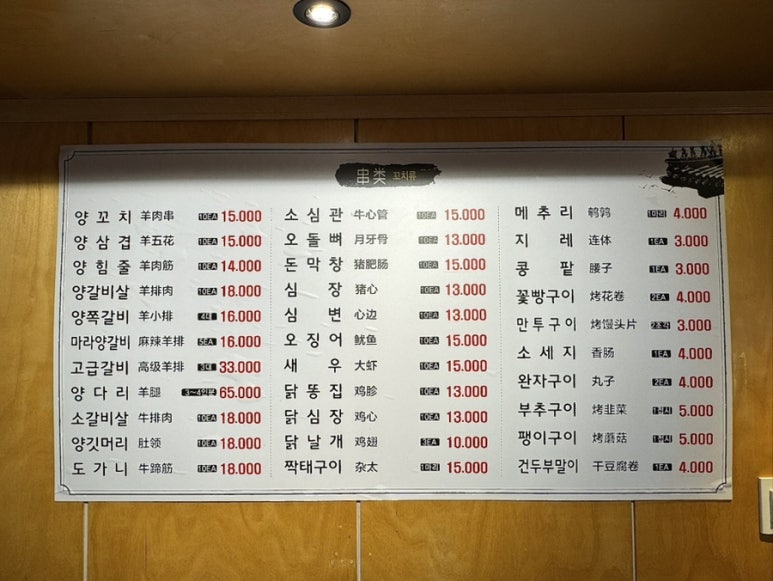 串类 꼬치류
양꼬치 羊肉串 10EA 15.000
양삼겹 羊五花 10EA 15.000
양힘줄 羊肉筋 10EA 14.000
양갈비살 羊排肉 10EA 18.000
양쪽갈비 羊小排 4대 16.000
마라양갈비 麻辣羊排 5EA 16.000
고급갈비 高级羊排 3대 33.000
양다리 羊腿 3~4인분 65.000
소갈비살 牛排肉 10EA 18.000
양깃머리 肚领 10EA 18.000
도가니 牛蹄筋 10EA 18.000
소심관 牛心管 10EA 15.000
오돌뼈 月牙骨 10EA 13.000
돈막창 猪肥肠 10EA 15.000
심장 猪心 10EA 13.000
심변 心边 10EA 13.000
오징어 鱿鱼 10EA 15.000
새우 大虾 10EA 15.000
닭똥집 鸡胗 10EA 13.000
닭심장 鸡心 10EA 13.000
닭날개 鸡翅 3EA 10.000
짝태구이 杂太 1마리 15.000
메추리 鹌鹑 1마리 4.000
지레 连体 1EA 3.000
콩팥 腰子 1EA 3.000
꽃빵구이 烤花卷 2EA 4.000
만투구이 烤馒头片 2조각 3.000
소세지 香肠 1EA 4.000
완자구이 丸子 2EA 4.000
부추구이 烤韭菜 1접시 5.000
팽이구이 烤蘑菇 1접시 5.000
건두부말이 干豆腐卷 1EA 4.000